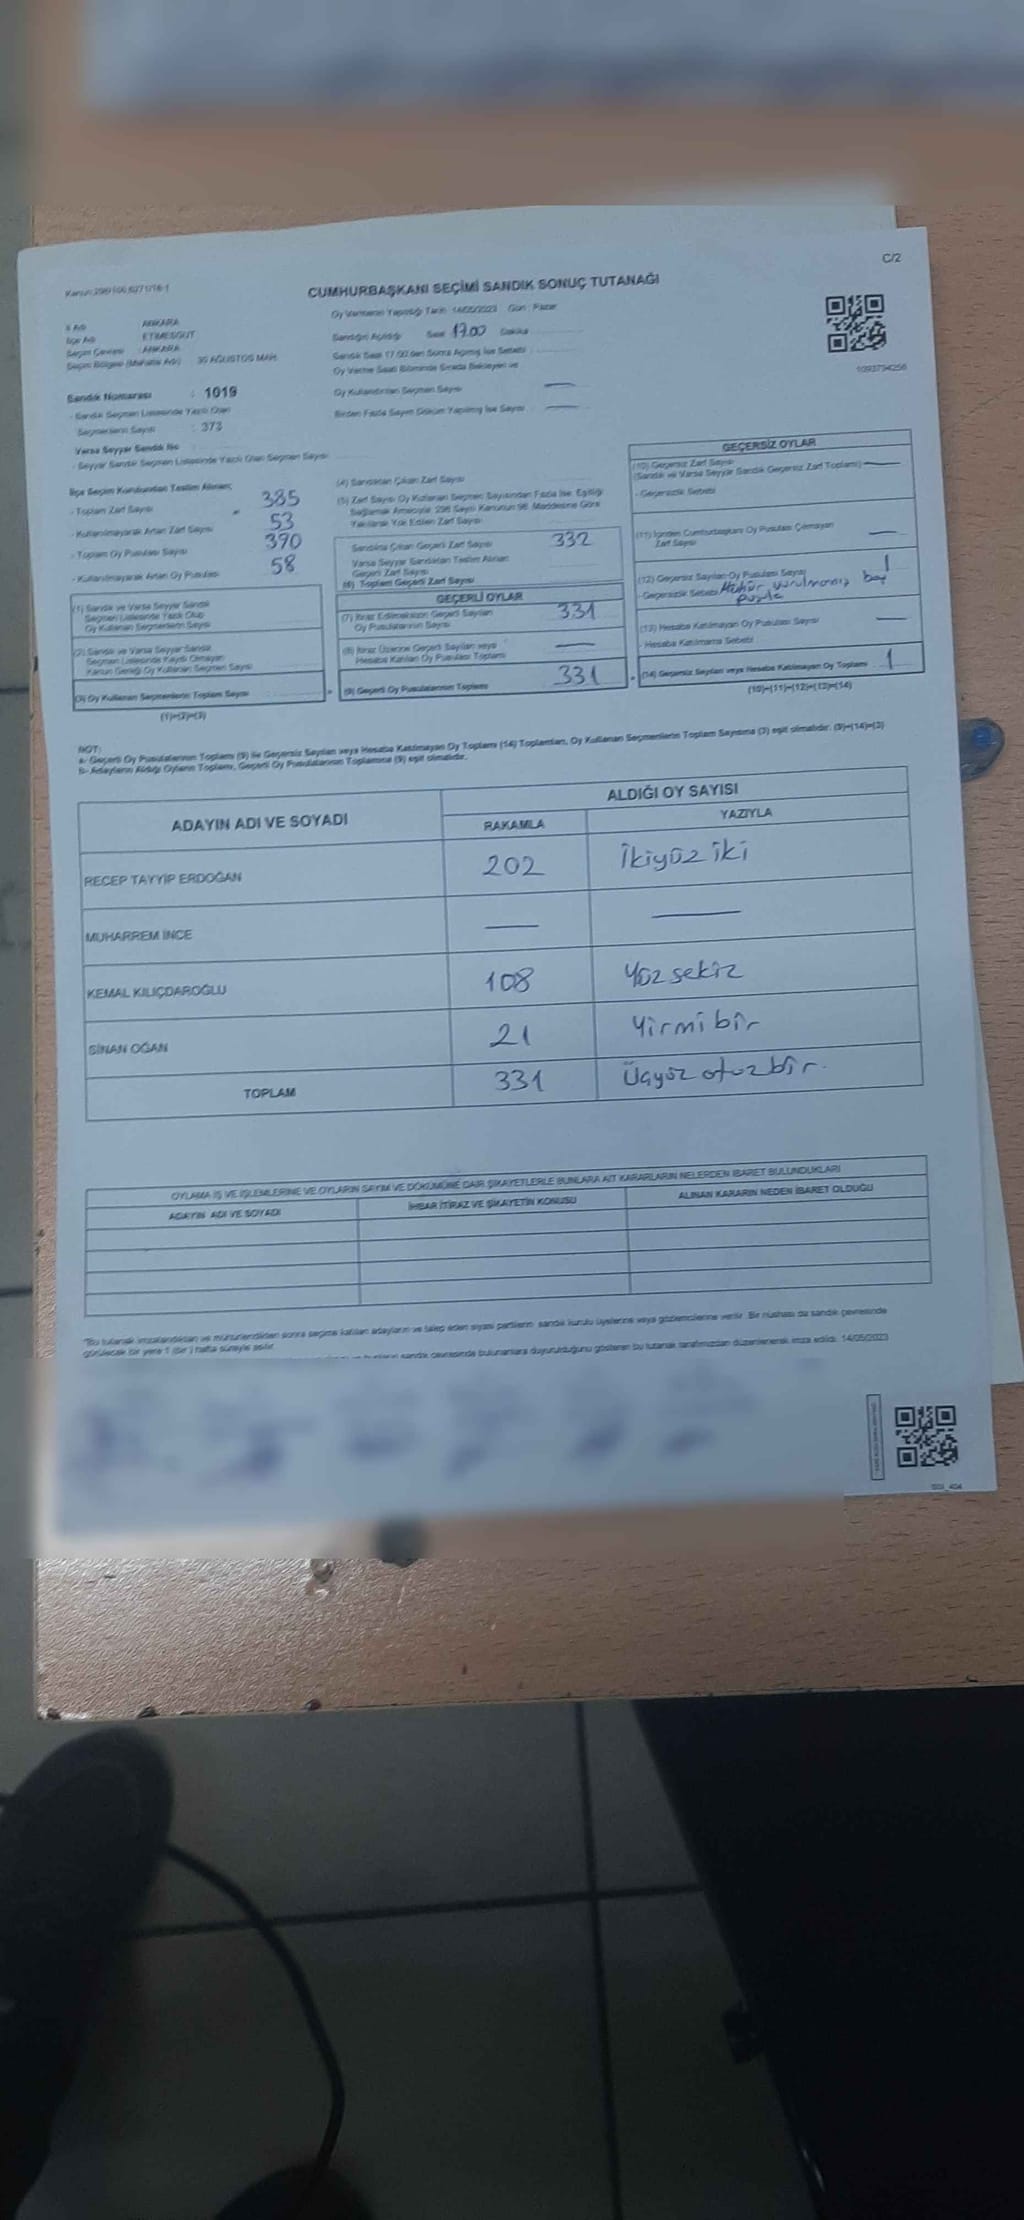 C/2
CUMHURBAŞKANI SEÇİMİ SANDIK SONUÇ TUTANAĞI
Oy Vermenin Yapıldığı Tarih 14/05/2023 Gün : Pazar
İl Adı ANKARA
İlçe Adı ETİMESGUT
Seçim Çevresi : ANKARA
Seçim Bölgesi (Mahalle Adı) 30 AĞUSTOS MAH.
Sandığın Açıldığı Saat 17.00 Dakika
Sandık Saat 17.00'den Sonra Açılmış İse Sebebi :
Oy Verme Saati Bitiminde Sırada Bekleyen ve
Oy Kullandırılan Seçmen Sayısı —
Birden Fazla Sayım Döküm Yapılmış İse Sayısı —
1093794256
Sandık Numarası : 1019
- Sandık Seçmen Listesinde Yazılı Olan
Seçmenlerin Sayısı : 373
Varsa Seyyar Sandık No
- Seyyar Sandık Seçmen Listesinde Yazılı Olan Seçmen Sayısı
İlçe Seçim Kurulundan Teslim Alınan;
- Toplam Zarf Sayısı 385
- Kullanılmayarak Artan Zarf Sayısı 53
- Toplam Oy Pusulası Sayısı 390
- Kullanılmayarak Artan Oy Pusulası 58
(1) Sandık ve Varsa Seyyar Sandık
Seçmen Listesinde Yazılı Olup
Oy Kullanan Seçmenlerin Sayısı
(2) Sandık ve Varsa Seyyar Sandık
Seçmen Listesinde Kayıtlı Olmayan
Kanun Gereği Oy Kullanan Seçmen Sayısı
(3) Oy Kullanan Seçmenlerin Toplam Sayısı
(1)+(2)=(3)
(4) Sandıktan Çıkan Zarf Sayısı
(5) Zarf Sayısı Oy Kullanan Seçmen Sayısından Fazla İse, Eşitliği
Sağlamak Amacıyla 298 Sayılı Kanunun 98. Maddesine Göre
Yakılarak Yok Edilen Zarf Sayısı
Sandıkta Çıkan Geçerli Zarf Sayısı 332
Varsa Seyyar Sandıktan Teslim Alınan
Geçerli Zarf Sayısı
(6) Toplam Geçerli Zarf Sayısı
GEÇERLİ OYLAR
(7) İtiraz Edilmeksizin Geçerli Sayılan
Oy Pusulalarının Sayısı 331
(8) İtiraz Üzerine Geçerli Sayılan veya
Hesaba Katılan Oy Pusulası Toplamı —
(9) Geçerli Oy Pusulalarının Toplamı 331
GEÇERSİZ OYLAR
(10) Geçersiz Zarf Sayısı
(Sandık ve Varsa Seyyar Sandık Geçersiz Zarf Toplamı) —
- Geçersizlik Sebebi
(11) İçinden Cumhurbaşkanı Oy Pusulası Çıkmayan
Zarf Sayısı —
(12) Geçersiz Sayılan Oy Pusulası Sayısı 1
- Geçersizlik Sebebi Mühür vurulmamış boş
pusula
(13) Hesaba Katılmayan Oy Pusulası Sayısı —
- Hesaba Katılmama Sebebi
(14) Geçersiz Sayılan veya Hesaba Katılmayan Oy Toplamı 1
(10)+(11)+(12)+(13)=(14)
NOT:
a- Geçerli Oy Pusulalarının Toplamı (9) ile Geçersiz Sayılan veya Hesaba Katılmayan Oy Toplamı (14) Toplamları, Oy Kullanan Seçmenlerin Toplam Sayısına (3) eşit olmalıdır. (9)+(14)=(3)
b- Adayların Aldığı Oyların Toplamı, Geçerli Oy Pusulalarının Toplamına (9) eşit olmalıdır.
ADAYIN ADI VE SOYADI
ALDIĞI OY SAYISI
RAKAMLA YAZIYLA
RECEP TAYYİP ERDOĞAN 202 İkiyüz iki
MUHARREM İNCE — —
KEMAL KILIÇDAROĞLU 108 Yüz sekiz
SİNAN OĞAN 21 Yirmi bir
TOPLAM 331 Üçyüz otuz bir.
OYLAMA İŞ VE İŞLEMLERİNE VE OYLARIN SAYIM VE DÖKÜMÜNE DAİR ŞİKAYETLERLE BUNLARA AİT KARARLARIN NELERDEN İBARET BULUNDUKLARI
ADAYIN ADI VE SOYADI İHBAR İTİRAZ VE ŞİKAYETİN KONUSU ALINAN KARARIN NEDEN İBARET OLDUĞU
"Bu tutanak imzalandıktan ve mühürlendikten sonra seçime katılan adayların ve talep eden siyasi partilerin sandık kurulu üyelerine veya gözlemcilerine verilir. Bir nüshası da sandık çevresinde
görülecek bir yere 1 (bir) hafta süreyle asılır.
sandık çevresinde bulunanlara duyurulduğunu gösteren bu tutanak tarafımızdan düzenlenerek imza edildi. 14/05/2023